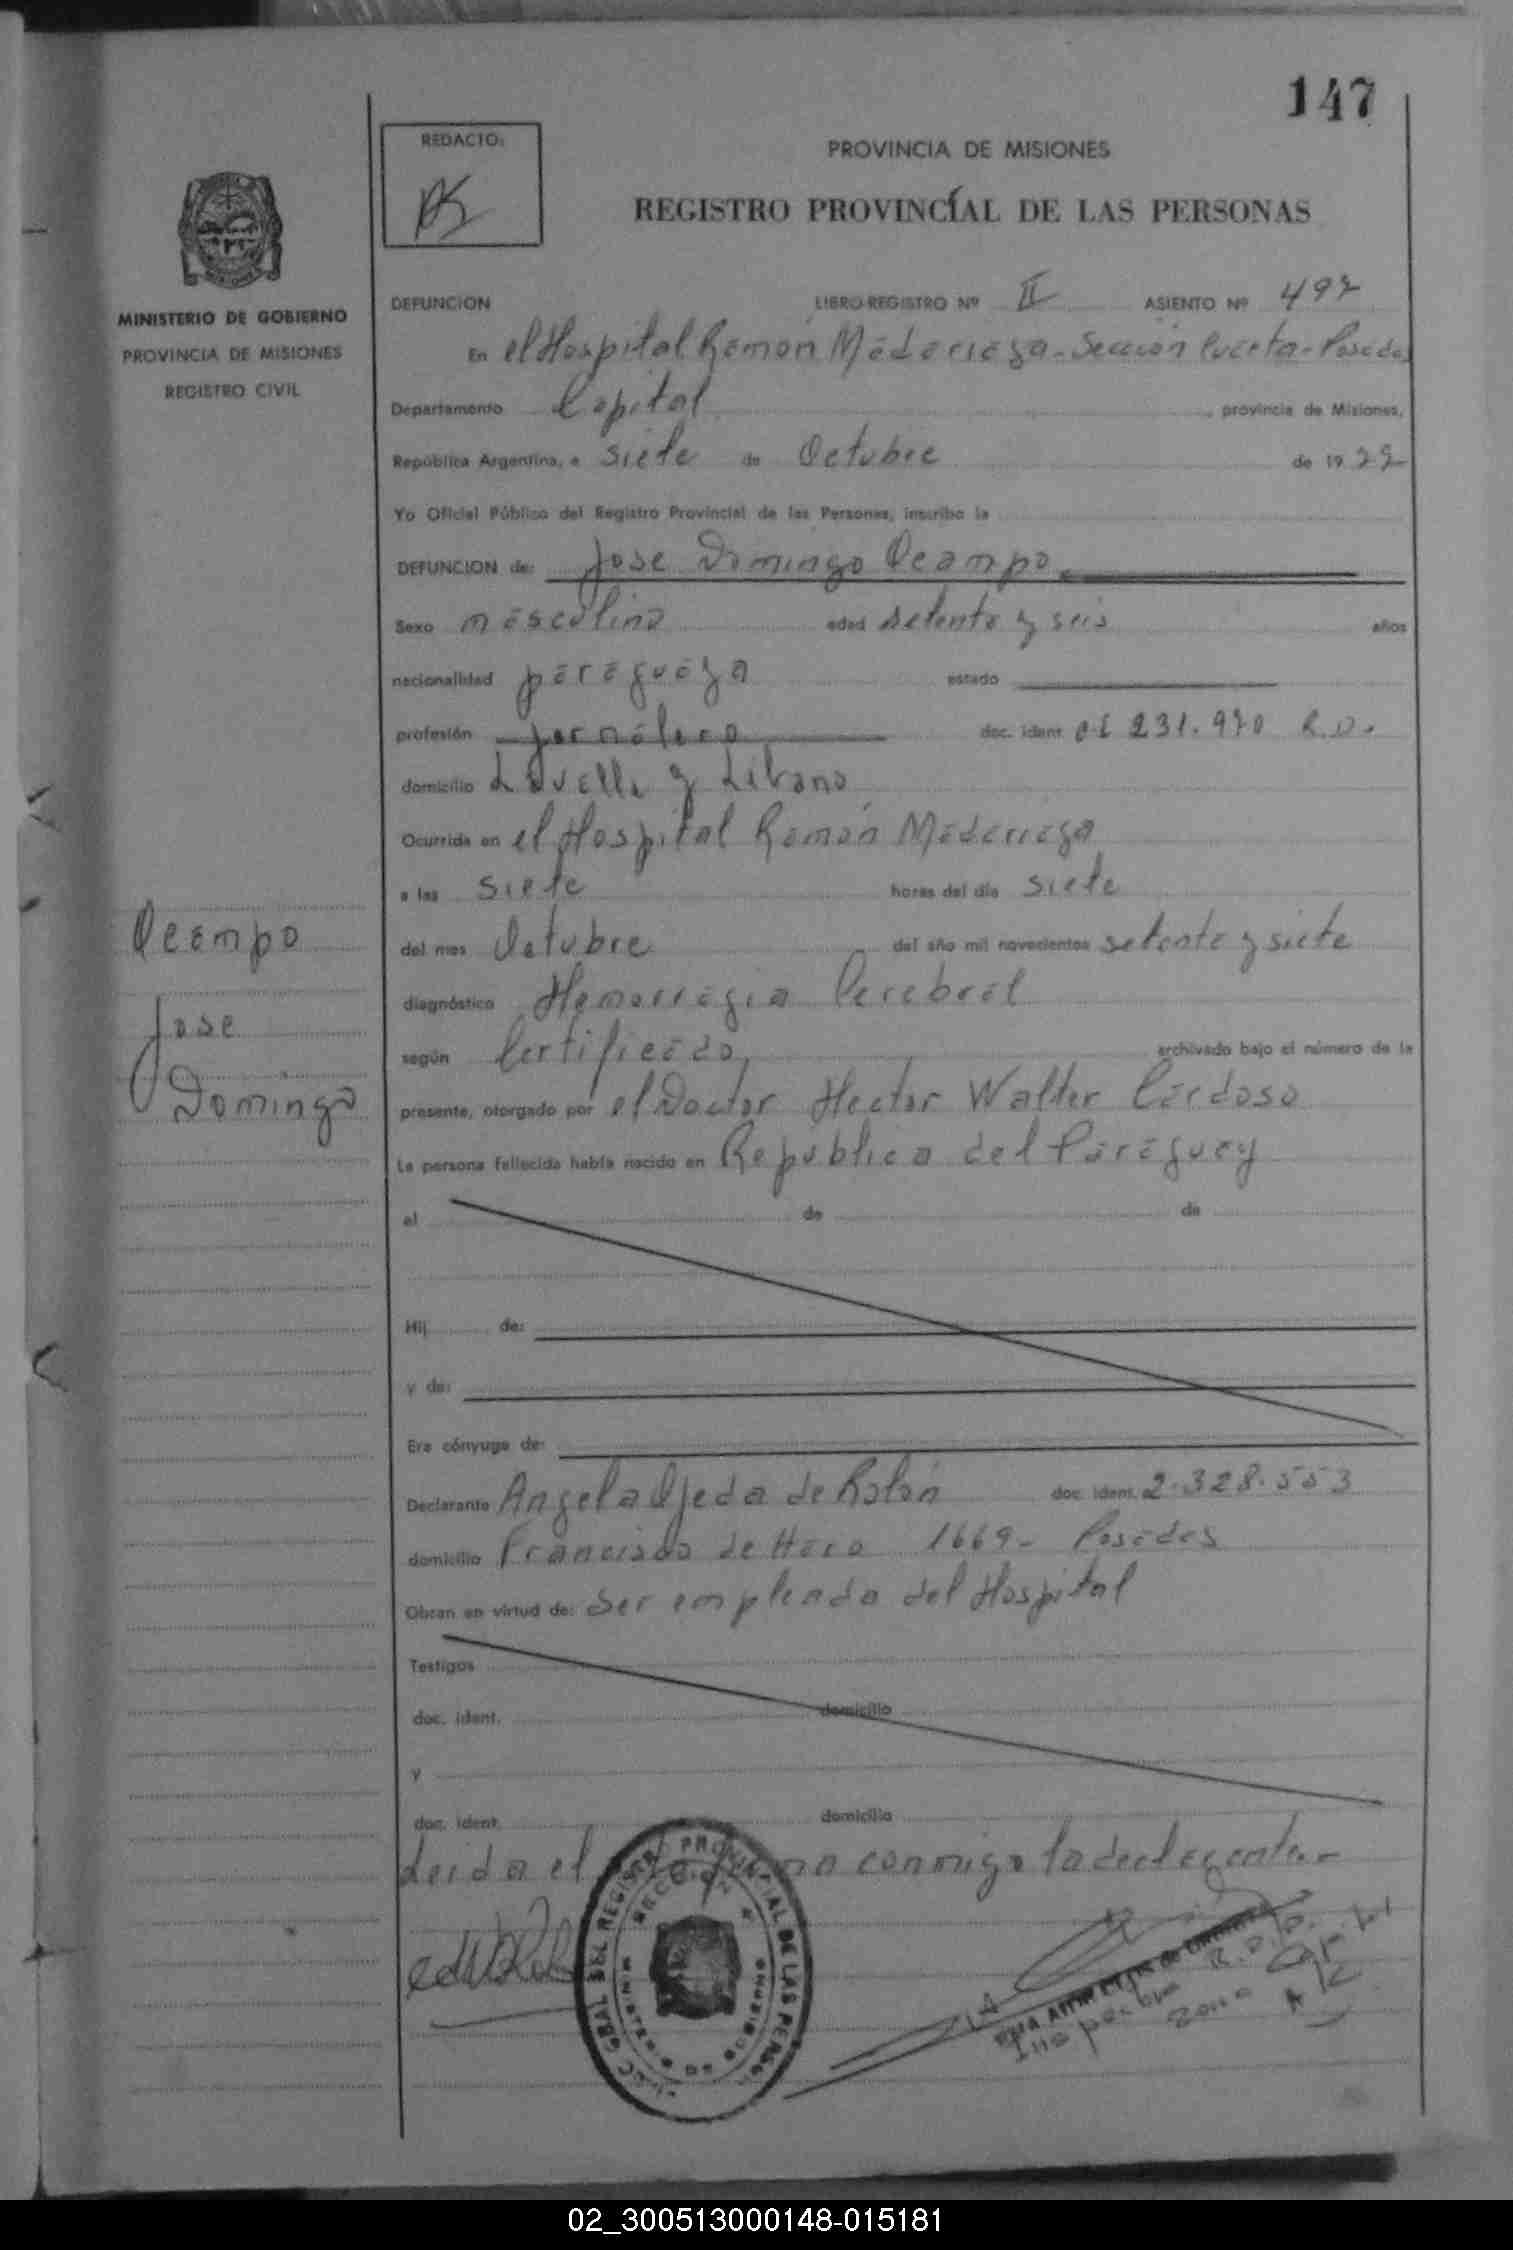 147
REDACTO:
PROVINCIA DE MISIONES
REGISTRO PROVINCÍAL DE LAS PERSONAS
MINISTERIO DE GOBIERNO
PROVINCIA DE MISIONES
REGISTRO CIVIL
DEFUNCION LIBRO-REGISTRO Nº II ASIENTO Nº 497
En el Hospital Ramón Madariaga - Sección Cuarta - Posadas
Departamento Capital, provincia de Misiones,
República Argentina, a siete de Octubre de 1977
Yo Oficial Público del Registro Provincial de las Personas, inscribo la
DEFUNCION de: Jose Domingo Ocampo
Sexo masculino edad setenta y seis años
nacionalidad paraguaya estado
profesión jornalero doc. ident. CI 231.970 R.D.
domicilio Lavalle y Libano
Ocurrida en el Hospital Ramón Madariaga
a las siete horas del día siete
del mes Octubre del año mil novecientos setenta y siete
diagnóstico Hemorragia Cerebral
según Certificado, archivado bajo el número de la
presente, otorgado por el Doctor Hector Walter Cardoso
La persona fallecida había nacido en Republica del Paraguay
el de de
Hij de:
y de:
Era cónyuge de:
Declarante Angela Ojeda de Rolón doc. ident. 2.328.553
domicilio Francisco de Haro 1669 - Posadas
Obran en virtud de: Ser empleada del Hospital
Testigos
doc. ident. domicilio
y
doc. ident. domicilio
Leida el conmigo la declarante.-
Ocampo
Jose
Domingo
REGISTRO PROVINCIAL DE LAS PERSONAS
SECCION 4
MINISTERIO DE GOBIERNO
02_300513000148-015181